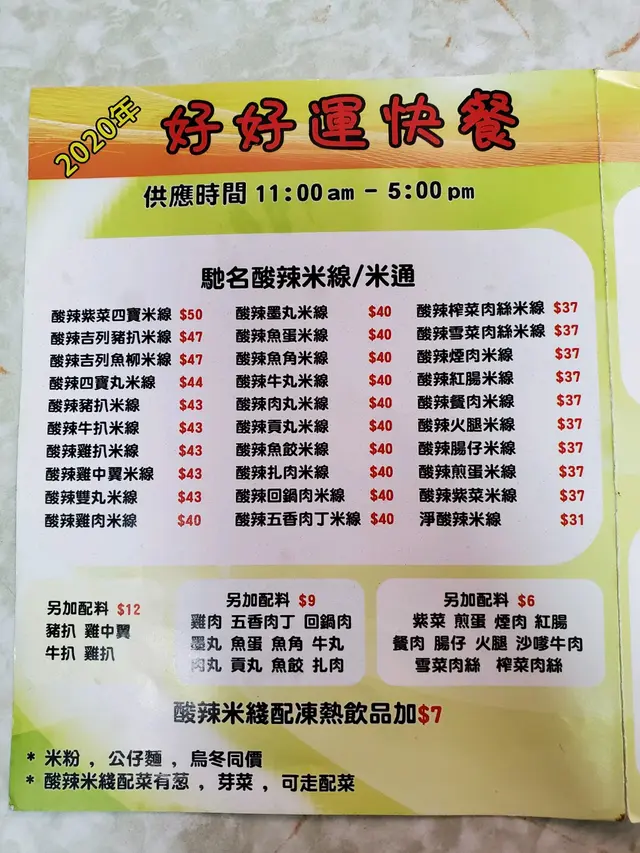 2020年
好好運快餐
供應時間 11:00 am - 5:00 pm
馳名酸辣米線/米通
酸辣紫菜四寶米線 $50
酸辣吉列豬扒米線 $47
酸辣吉列魚柳米線 $47
酸辣四寶丸米線 $44
酸辣豬扒米線 $43
酸辣牛扒米線 $43
酸辣雞扒米線 $43
酸辣雞中翼米線 $43
酸辣雙丸米線 $43
酸辣雞肉米線 $40
酸辣墨丸米線 $40
酸辣魚蛋米線 $40
酸辣魚角米線 $40
酸辣牛丸米線 $40
酸辣肉丸米線 $40
酸辣貢丸米線 $40
酸辣魚餃米線 $40
酸辣扎肉米線 $40
酸辣回鍋肉米線 $40
酸辣五香肉丁米線 $40
酸辣榨菜肉絲米線 $37
酸辣雪菜肉絲米線 $37
酸辣煙肉米線 $37
酸辣紅腸米線 $37
酸辣餐肉米線 $37
酸辣火腿米線 $37
酸辣腸仔米線 $37
酸辣煎蛋米線 $37
酸辣紫菜米線 $37
淨酸辣米線 $31
另加配料 $12
豬扒 雞中翼
牛扒 雞扒
另加配料 $9
雞肉 五香肉丁 回鍋肉
墨丸 魚蛋 魚角 牛丸
肉丸 貢丸 魚餃 扎肉
另加配料 $6
紫菜 煎蛋 煙肉 紅腸
餐肉 腸仔 火腿 沙嗲牛肉
雪菜肉絲 榨菜肉絲
酸辣米綫配凍熱飲品加$7
* 米粉 , 公仔麵 , 烏冬同價
* 酸辣米綫配菜有葱 , 芽菜 , 可走配菜